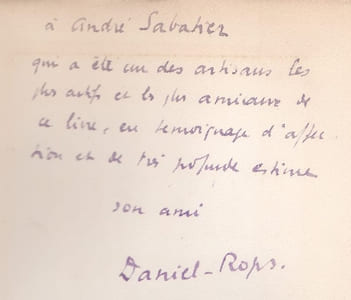 à André Sabatier
qui a été un des artisans les
plus actifs et les plus amicaux de
ce livre, en témoignage d'affec
tion et de très profonde estime
son ami
Daniel-Rops.